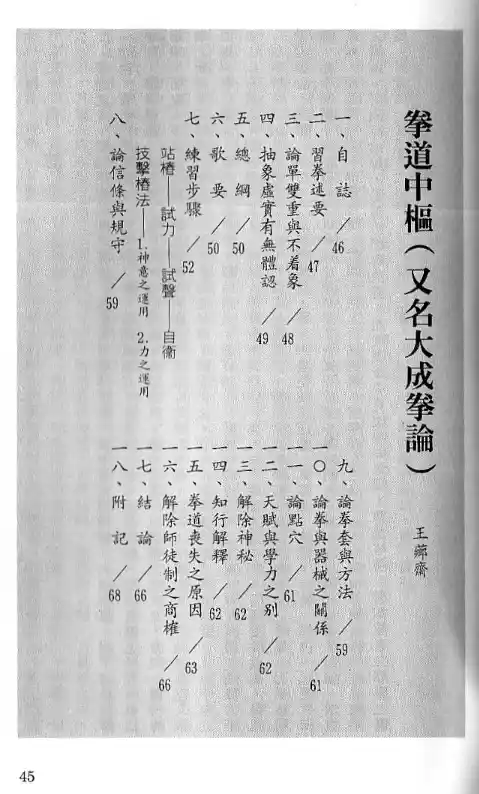 拳道中樞（又名大成拳論）
王薌齋
一、自　誌／46
二、習拳述要／47
三、論單雙重與不着象／48
四、抽象虛實有無體認／49
五、總　綱／50
六、歌　要／50
七、練習步驟／52
站樁——試力——試聲——自衞
技擊樁法——1.神意之運用　2.力之運用
八、論信條與規守／59
九、論拳套與方法／59
一○、論拳與器械之關係／61
一一、論點穴／61
一二、天賦與學力之別／62
一三、解除神秘／62
一四、知行解釋／62
一五、拳道喪失之原因／63
一六、解除師徒制之商榷／66
一七、結　論／66
一八、附　記／68
45